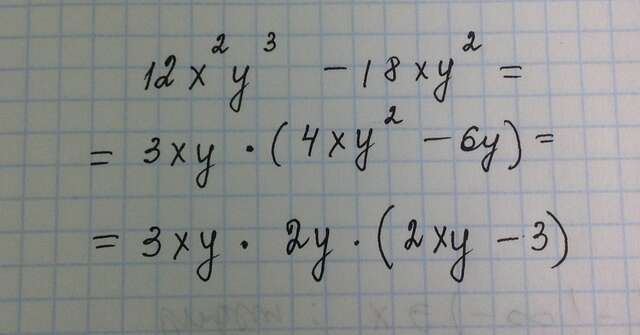 12x²y³ - 18xy² =
= 3xy · (4xy² - 6y) =
= 3xy · 2y · (2xy - 3)